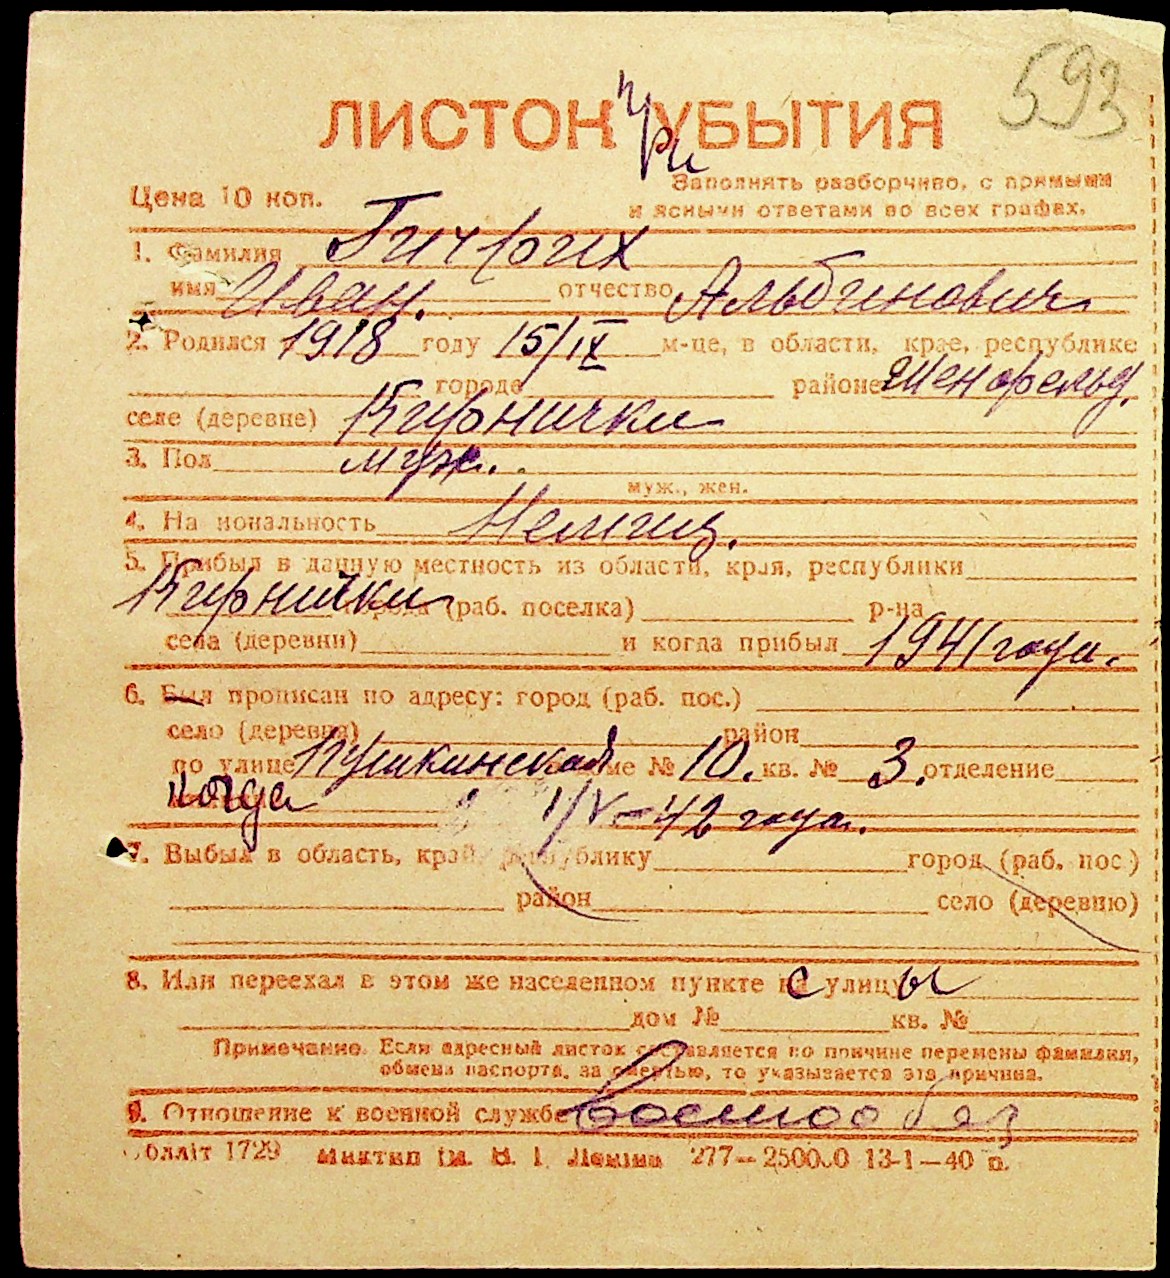 593
ЛИСТОК ПРИБЫТИЯ
Цена 10 коп.
Заполнять разборчиво, с прямыми
и ясными ответами во всех графах.
1. Фамилия Гичрих
имя Иван. отчество Альбинович
2. Родился 1918 году 15/IX м-це, в области, крае, республике
городе районе Шенфельд.
селе (деревне) Кирнички
3. Пол муж.
муж., жен.
4. Национальность Немец.
5. Прибыл в данную местность из области, края, республики
Кирнички города (раб. поселка) р-на
села (деревни) и когда прибыл 1941 года.
6. Был прописан по адресу: город (раб. пос.)
село (деревня) район
по улице Пушкинской доме № 10. кв. № 3. отделение
когда 1/V-42 года.
7. Выбыл в область, край, республику город (раб. пос.)
район село (деревню)
8. Или переехал в этом же населенном пункте с улицы
дом № кв. №
Примечание. Если адресный листок составляется по причине перемены фамилии,
обмена паспорта, за смертью, то указывается эта причина.
9. Отношение к военной службе Военнообяз
Облліт 1729 Миктип ім. В. І. Леніна 277—250000 13-1—40 п.